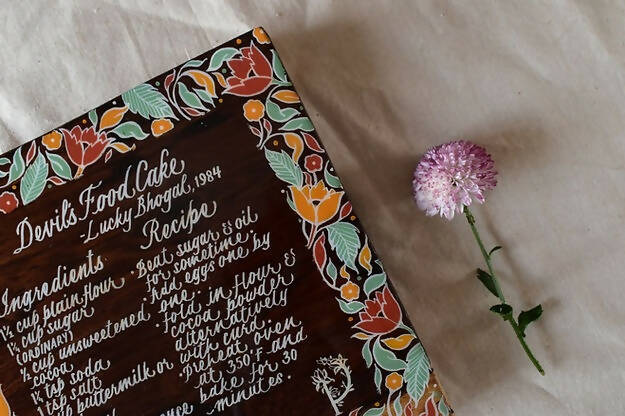 Devil's Food Cake
-Lucky Bhogal, 1984
Recipe
Ingredients
1¼ cup plain flour
1¼ cup sugar
(ORDINARY)
½ cup unsweetened
cocoa
tsp soda
tsp salt
buttermilk or
· Beat sugar & oil
for sometime.
· Add eggs one by
one.
· Fold in flour &
cocoa powder
alternatively
with curd.
· Preheat oven
at 350°F and
bake for 30
minutes.